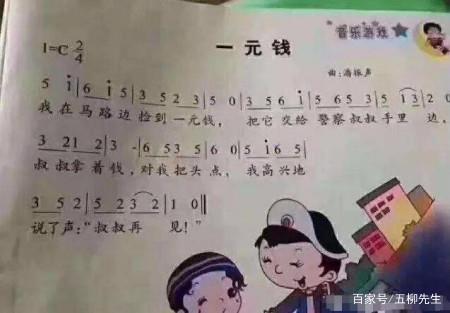 音乐游戏
1=C 2/4
一元钱
曲:潘振声
5 i|6 i 5|3 5 2 3|5 0|3 5 6 i|5 6 5 3|5 1 3|2 0
我在马路边捡到一元钱, 把它交给警察叔叔手里边,
3 2 1 2|3 -|6 5 3 5|6 0|5 i 6 5|
叔叔拿着钱,对我把头点, 我高兴地
3 5 2|5 2 3 2|1 0‖
说了声:“叔叔再 见!”
百家号/五柳先生